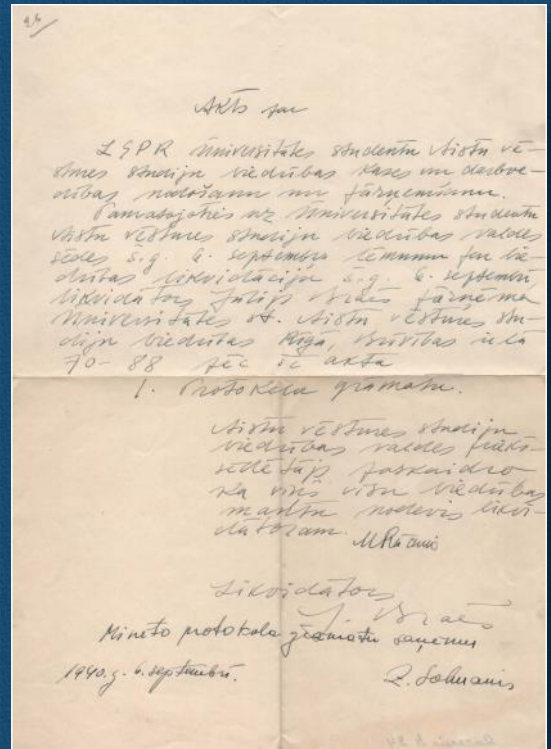 Akts par
LSPR Universitātes studentu Aistu vē-
stures studiju biedrības kases un darbve-
dības nodošanu un pārņemšanu.
Pamatojoties uz Universitātes studentu
Aistu vēstures studiju biedrības valdes
sēdes š.g. 6. septembra lēmumu par bie-
drības likvidāciju š.g. 6. septembrī,
likvidators Jūlijs pārņēma
Universitātes st. Aistu vēstures stu-
diju biedrības Rīgā, Brīvības ielā
70-88 pēc šī akta
1. Protokola grāmatu.
Aistu vēstures studiju
biedrības valdes priekš-
sēdētājs paskaidro
ka viņš visu biedrības
mantu nodevis likvi-
dātoram.
Likvidators
Minēto protokola grāmatu saņēmu
1940.g. 6. septembrī.